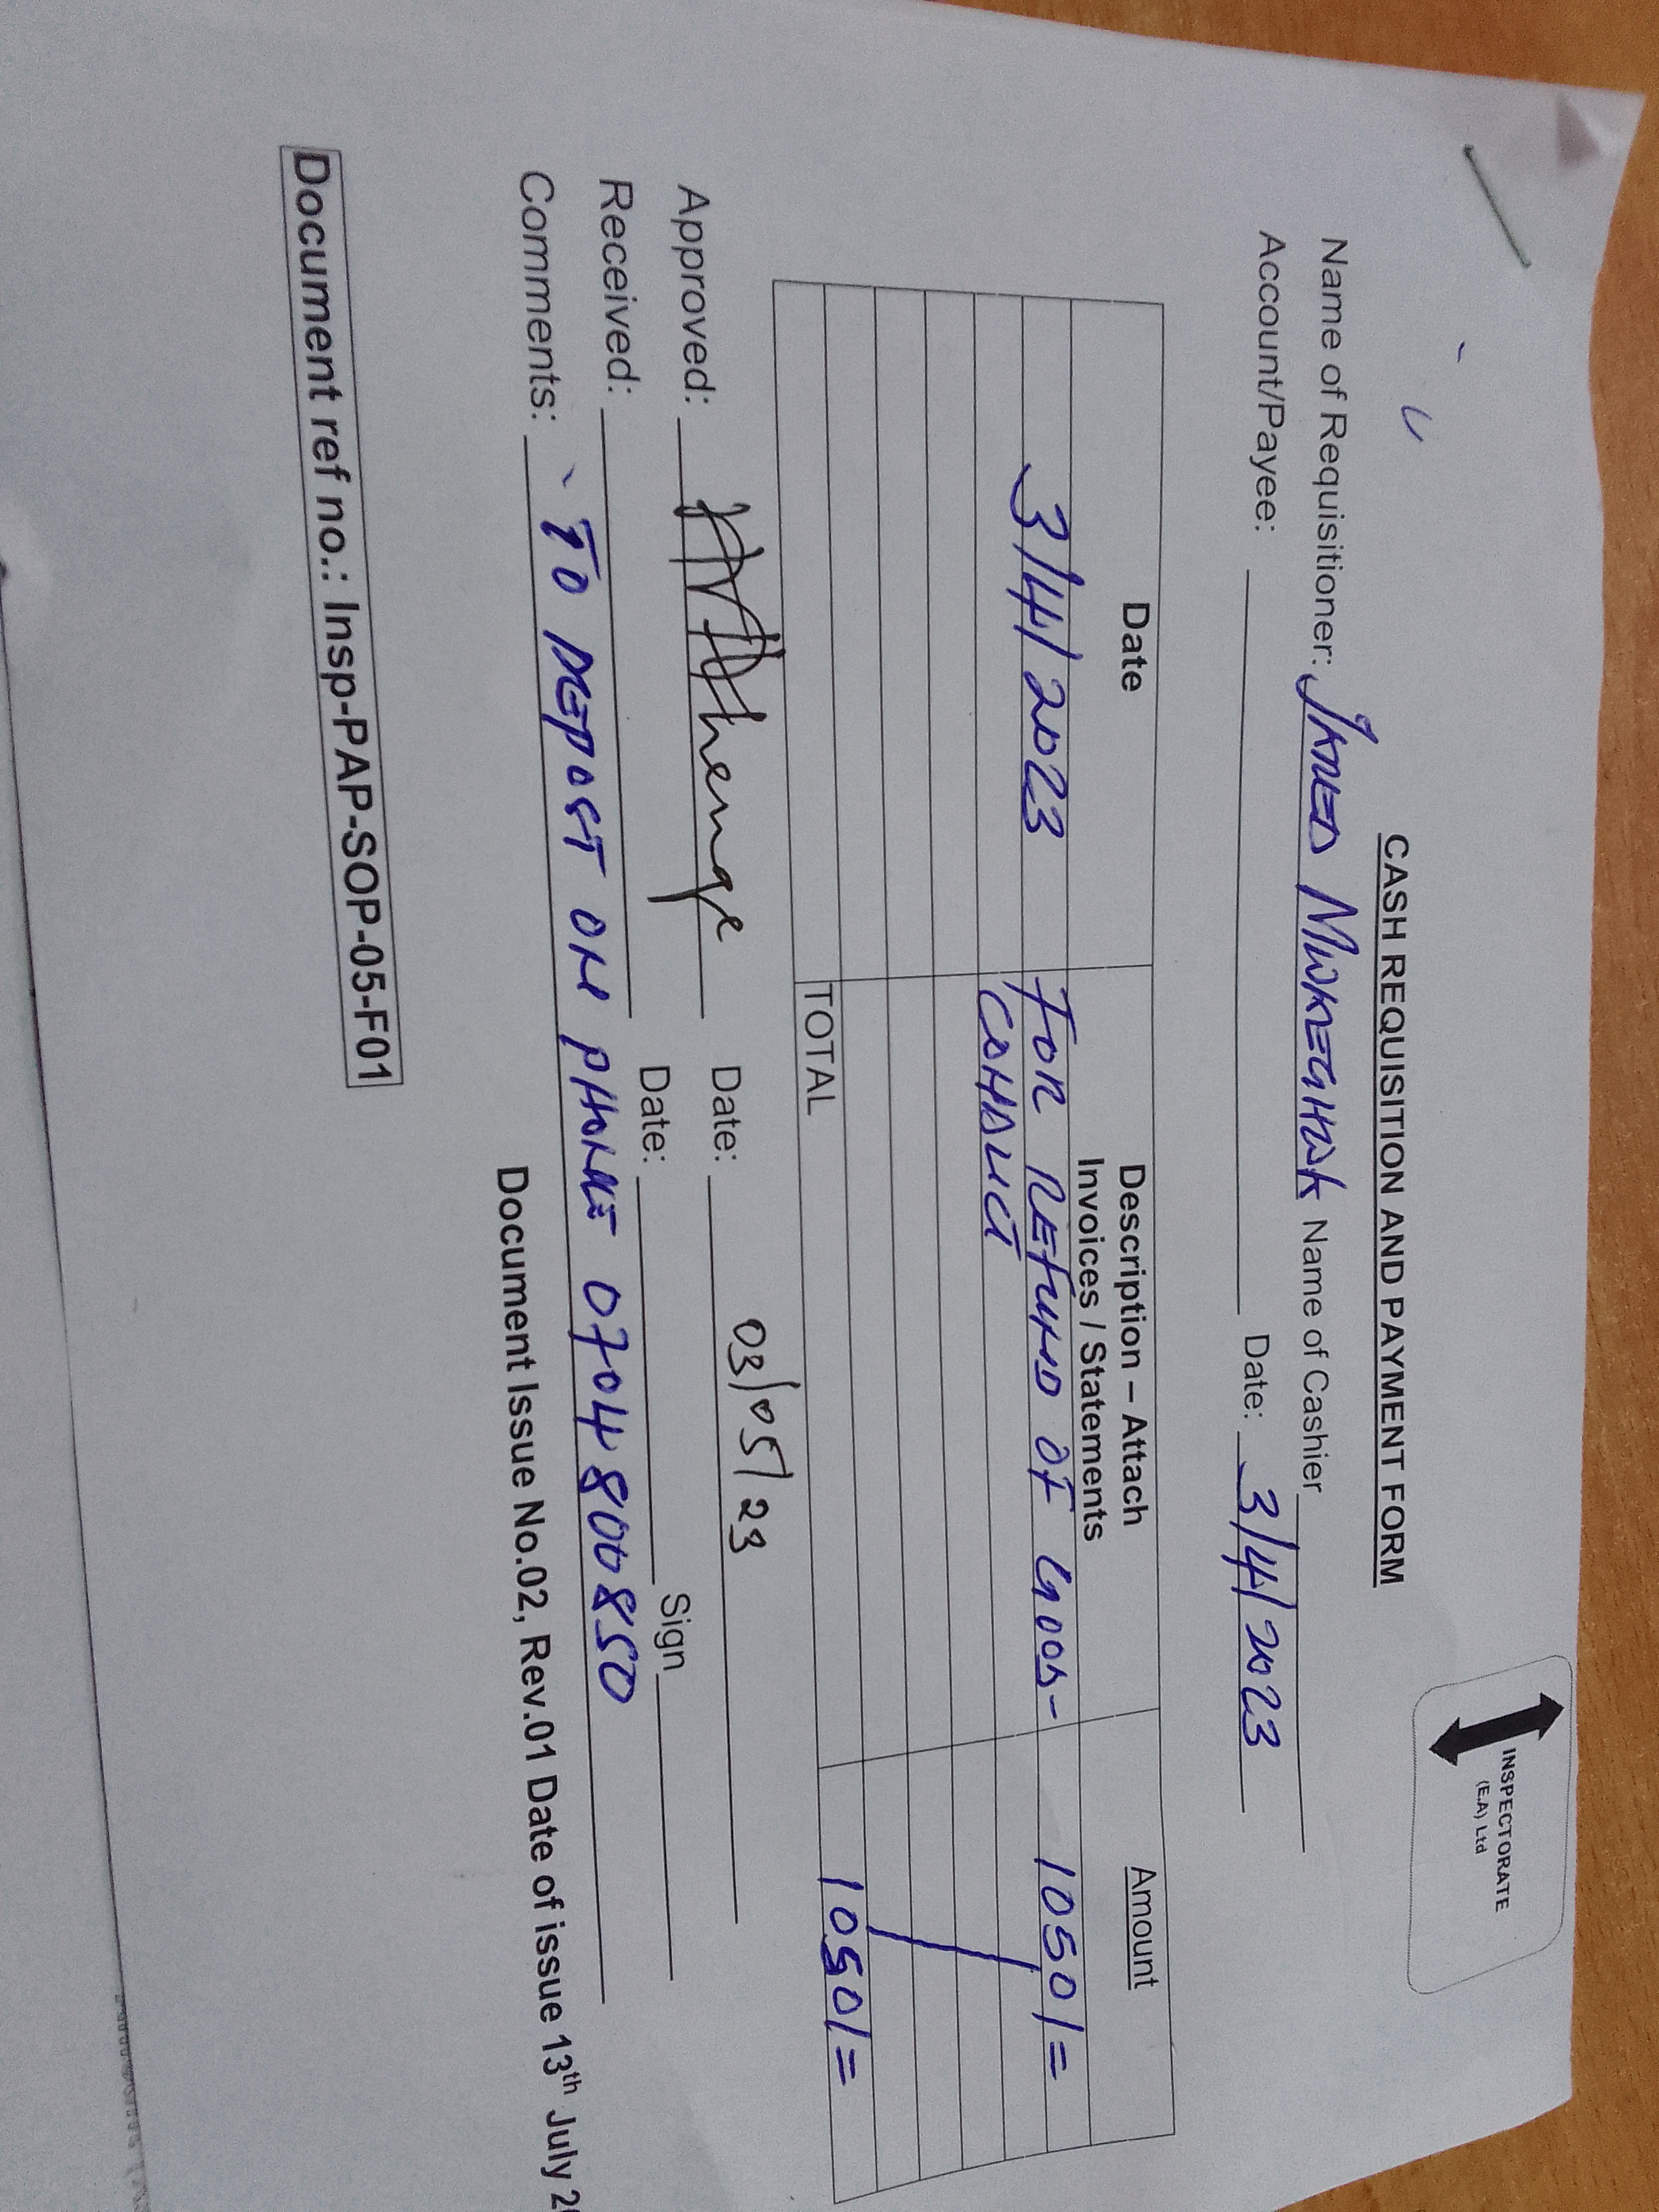 INSPECTORATE
(E.A) Ltd
CASH REQUISITION AND PAYMENT FORM
Name of Requisitioner: JARED Name of Cashier
Account/Payee: Date: 3/4/2023
Date Description – Attach Invoices / Statements Amount
3/4/2023 FOR REFUND OF GOOD- 1050/=
CONDUCT
TOTAL 1050/=
Approved: Date: 03/05/23
Received: Date: Sign
Comments: TO DEPOST ON PHONE 0704800850
Document Issue No.02, Rev.01 Date of issue 13th July
Document ref no.: Insp-PAP-SOP-05-F01